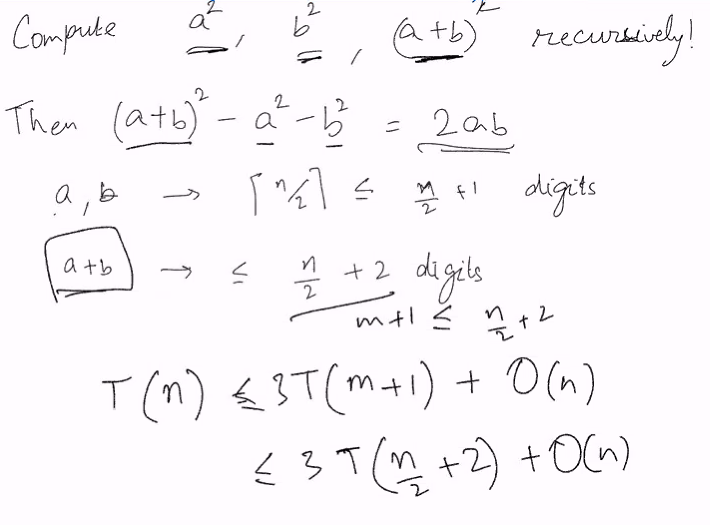 Compute a², b², (a+b)² recursively!
Then (a+b)² - a² - b² = 2ab
a, b → ⌈n/2⌉ ≤ n/2 +1 digits
a+b → ≤ n/2 + 2 digits
m+1 ≤ n/2 + 2
T(n) ≤ 3T(m+1) + O(n)
≤ 3T(n/2 +2) + O(n)